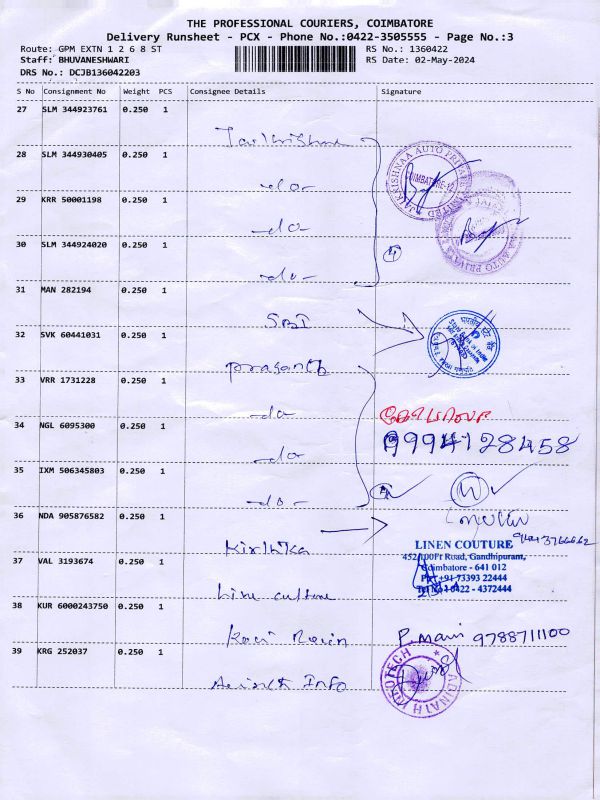 THE PROFESSIONAL COURIERS, COIMBATORE
Delivery Runsheet - PCX - Phone No.:0422-3505555 - Page No.:3
Route: GPM EXTN 1 2 6 8 ST
RS No.: 1360422
Staff: BHUVANESHWARI
RS Date: 02-May-2024
DRS No.: DCJB136042203
S No Consignment No Weight PCS Consignee Details Signature
27 SLM 344923761 0.250 1
Jaikrishna
28 SLM 344930405 0.250 1
-do-
29 KRR 50001198 0.250 1
-do-
30 SLM 344924020 0.250 1
-do-
JAIKRISHNAA AUTO PRIVATE LIMITED
COIMBATORE-12
4
31 MAN 282194 0.250 1
SBI
32 SVK 60441031 0.250 1
prasanth
33 VRR 1731228 0.250 1
-do-
34 NGL 6095300 0.250 1
-do-
9994128458
35 IXM 506345803 0.250 1
-do-
36 NDA 905876582 0.250 1
Kirthika
LINEN COUTURE
452,100Ft Road, Gandhipuram,
Coimbatore - 641 012
Ph: +91 73393 22444
Tel No : 0422 - 4372444
37 VAL 3193674 0.250 1
38 KUR 6000243750 0.250 1
P. Mani 9788711100
39 KRG 252037 0.250 1
ADINATH INFOTECH
Info